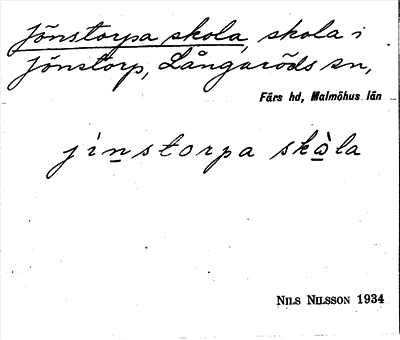 Jönstorpa skola, skola i
Jönstorp, Långaröds sn,
Färs hd, Malmöhus län
jìn̲storpa skò̲la
NILS NILSSON 1934